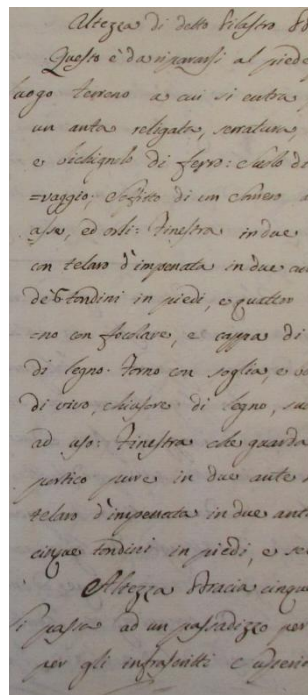 Altezza di detto Pilastro
Questo è da ripararsi al piede
luogo terreno a cui si entra
un anta religata, serratura,
e cichignolo di ferro: Suolo di
=vaggio; Soffitto di un chiaro a
asse, ed orli: Finestra in due
con telaro d'impenata in due an
de 6 tondini in piedi, e quattro
mo con focolare, e cappa di
di legno. Forno con soglia, e vo
di vivo, chiusore di legno, su
ad uso: Finestra che guarda
portico pure in due ante
telaro d'impenata in due ant
cinque tondini in piedi, e se
Altezza Bracia cinqu
si passa ad un passadizzo per
per gli infrascritti